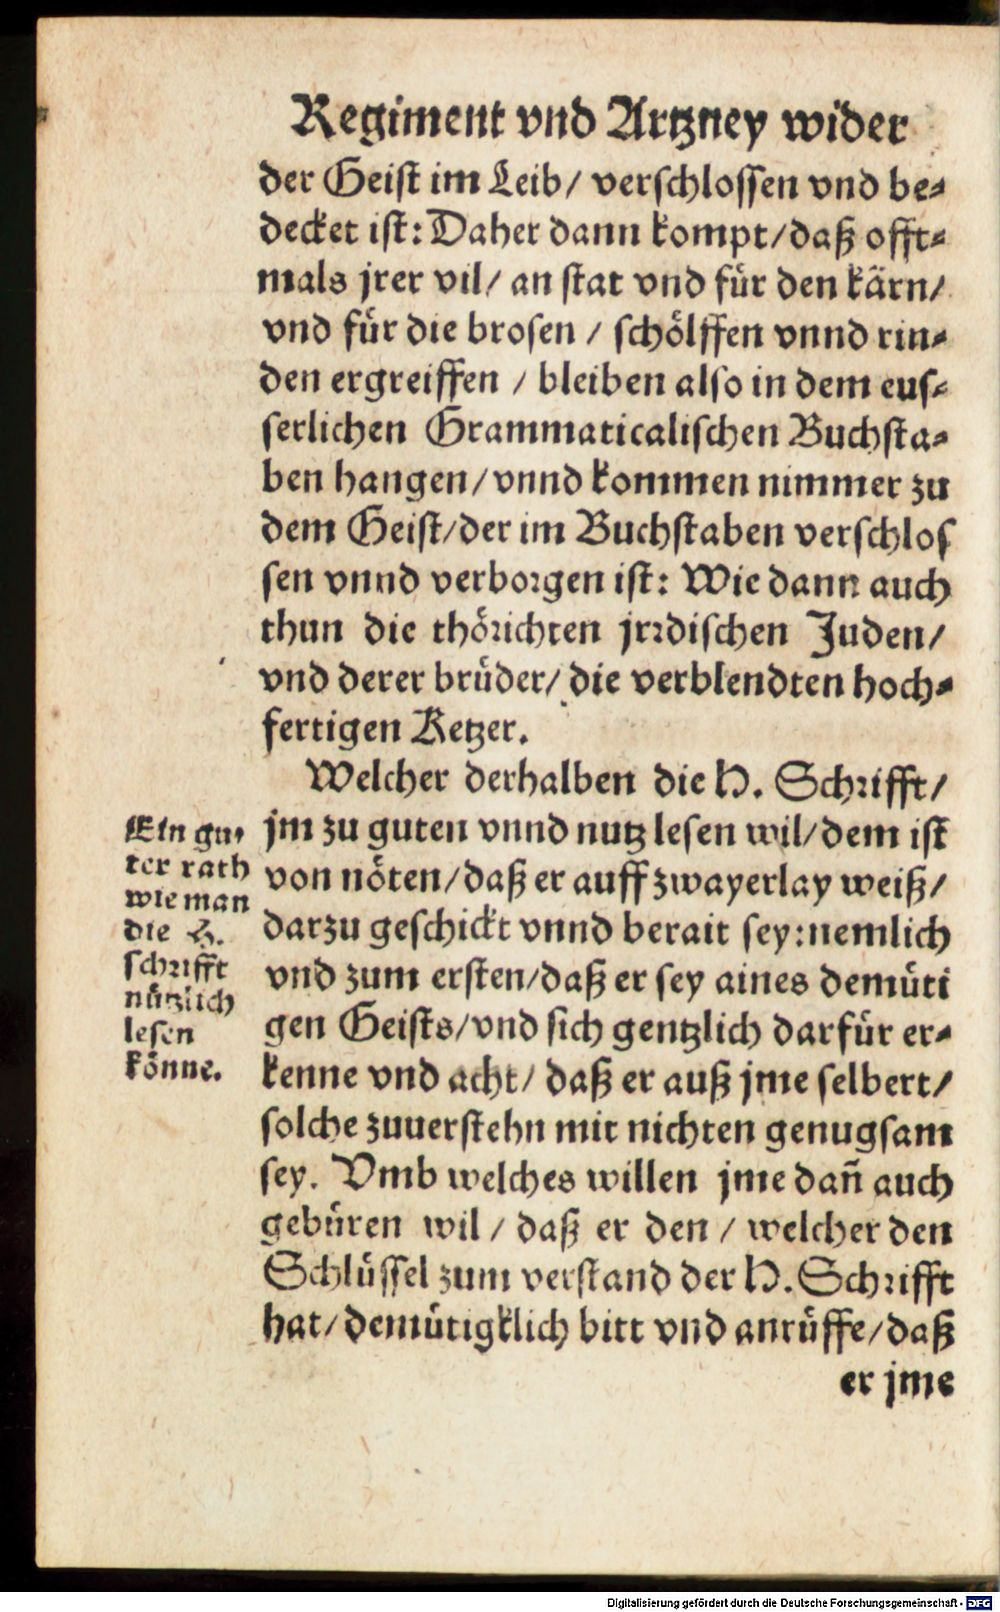 Regiment vnd Artzney wider
der Geist im Leib/ verschlossen vnd be-
decket ist: Daher dann kompt/daß offt-
mals jrer vil/ an stat vnd für den kärn/
vnd für die brosen / schölffen vnnd rin-
den ergreiffen / bleiben also in dem eus-
serlichen Grammaticalischen Buchsta-
ben hangen/vnnd kommen nimmer zu
dem Geist/der im Buchstaben verschlos
sen vnnd verborgen ist: Wie dann auch
thun die thörichten jrrdischen Juden/
vnd derer brüder/ die verblendten hoch-
fertigen Ketzer.
Welcher derhalben die H. Schrifft/
jm zu guten vnnd nutz lesen wil/dem ist
von nöten/daß er auff zwayerlay weiß/
darzu geschickt vnnd berait sey:nemlich
vnd zum ersten/daß er sey aines demüti
gen Geists/vnd sich gentzlich darfür er-
kenne vnd acht/ daß er auß jme selbert/
solche zuuerstehn mit nichten genugsam
sey. Vmb welches willen jme dañ auch
gebüren wil / daß er den / welcher den
Schlüssel zum verstand der H. Schrifft
hat/demütigklich bitt vnd anrüffe/daß
er jme
Ein gu-
ter rath
wie man
die H.
schrifft
nützlich
lesen
könne.
Digitalisierung gefördert durch die Deutsche Forschungsgemeinschaft - DFG